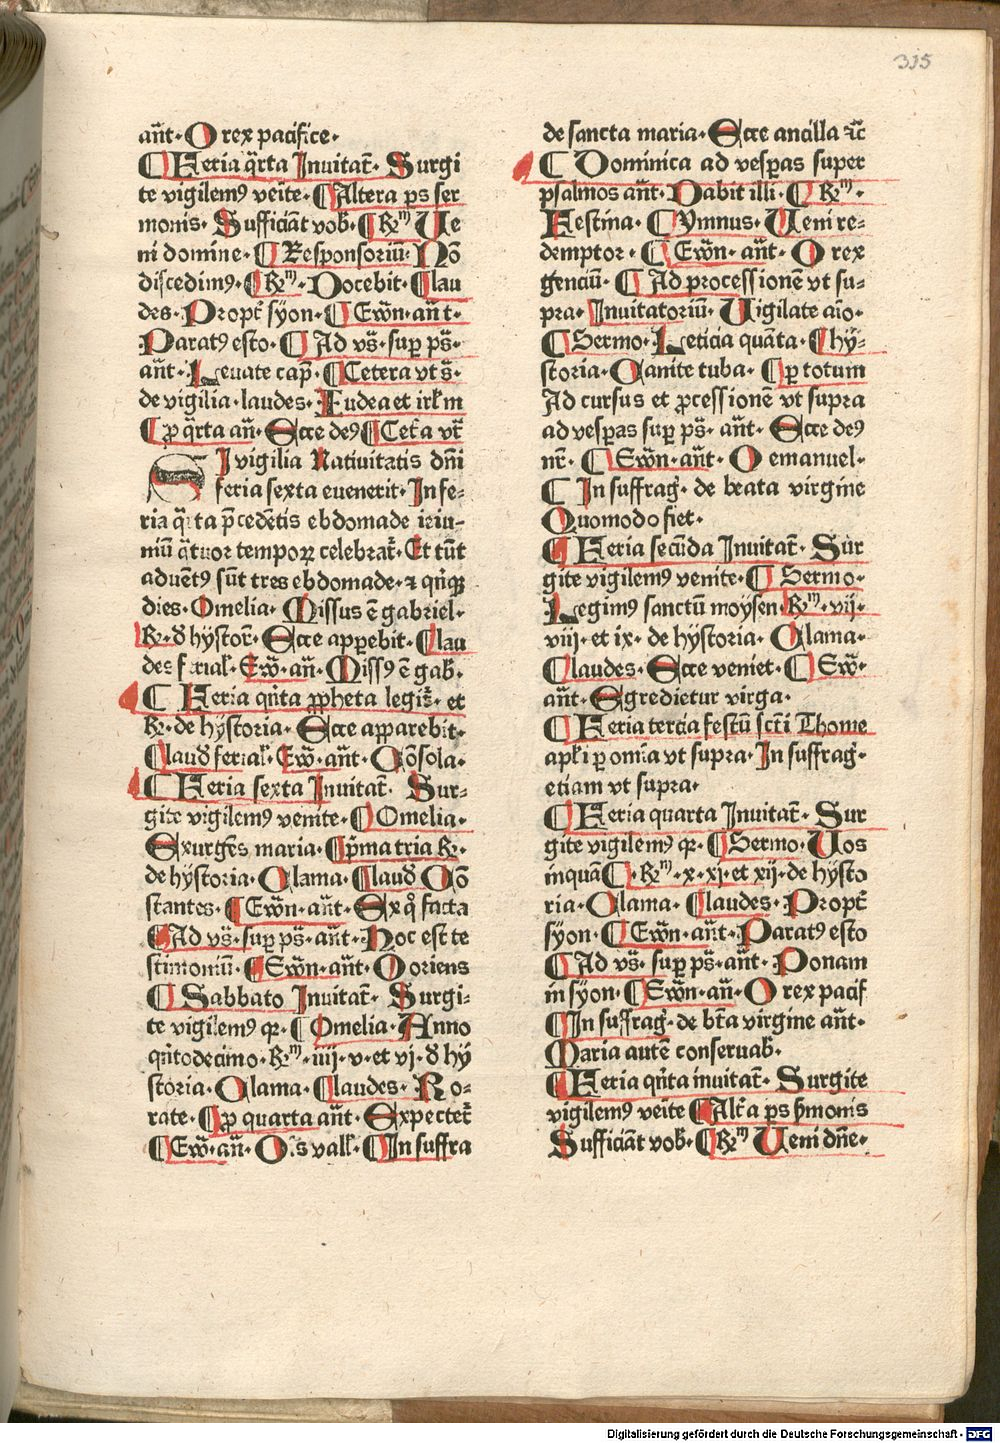 315
an̄t· O rex pacifice·
¶ Feria q̄rta Inuitat̄· Surgi
te vigilemꝰ veīte· ¶ Altera ps ser
monis· Sufficiāt vob̵· ¶ Rm Ue
ni domine· ¶ Responsoriū· Nō
discedimꝰ· ¶ Rm· Docebit· ¶ lau
des· Propt̄ syon· ¶ Ewn̄· an̄t·
Paratꝰ esto· ¶ Ad vs̄· suꝑ ps̄·
an̄t· Leuate cap̄· ¶ Cetera vt s̄·
de vigilia· laudes· Iudea et irl̄m
¶ ꝓ q̄rta an̄· Ecce deꝰ ¶ Cet̄a vt̄
SI vigilia Natiuitatis dn̄i
feria sexta euenerit· In fe-
ria q̄rta p̄cedētis ebdomade ieiu-
niū q̄tuor tempoꝝ celebrat̄· Et tūt
aduētꝰ sūt tres ebdomade· ⁊ qn̄qꝫ
dies· Omelia· Missus ē gabriel·
R· d̵ hystor̄· Ecce apꝑebit· ¶ lau
des ferial̵· Ew̄· an̄· Missꝰ ē gab̵·
¶ Feria qn̄ta ꝓpheta legit̄· et
R· de hystoria· Ecce apparebit·
¶ laud̵ ferial̵· Ew̄· an̄t· Cōsola·
¶ Feria sexta Inuitat̄· Sur-
gite vigilemꝰ venite· ¶ Omelia·
Exurgēs maria· ¶ p̄ma tria R·
de hystoria· Clama· ¶ laud̵ Cō
stantes· ¶ Ewn̄· an̄t· Ex qͦ facta
¶ Ad vs̄· suꝑ ps̄· an̄t· Hoc est te
stimoniū· ¶ Ewn̄· an̄t· O oriens
¶ Sabbato Inuitat̄· Surgi-
te vigilemꝰ qꝛ· ¶ Omelia· Anno
qn̄todecimo· Rm· iiij· v· et vj· d̵ hy
storia· Clama· ¶ laudes· Ro-
rate· ¶ ꝓ quarta an̄t· Expectet̄
¶ Ew̄· an̄· O vall̵· ¶ In suffra
de sancta maria· Ecce ancilla ⁊c̄
¶ Dominica ad vesꝑas super
psalmos an̄t· Dabit illi· ¶ Rm·
Festina· ¶ Ymnus· Ueni re-
demptor· ¶ Ewn̄· an̄t· O rex
genciū· ¶ Ad processionē vt su-
pra· Inuitatoriū· Uigilate aīo·
¶ Sermo· Leticia quāta· ¶ hy-
storia· Canite tuba· ¶ ꝑ totum
Ad cursus et ꝓcessionē vt supra
ad vesꝑas suꝑ ps̄· an̄t· Ecce deꝰ
nr̄· ¶ Ewn̄· an̄t· O emanuel·
¶ In suffrag̵· de beata virgine
Quomodo fiet·
¶ Feria secūda Inuitat̄· Sur
gite vigilemꝰ venite· ¶ Sermo·
Legimꝰ sanctū moysen· Rm· vij·
viij· et ix· de hystoria· Clama·
¶ laudes· Ecce veniet· ¶ Ew̄·
an̄t· Egredietur virga·
¶ Feria tercia festū scti Thome
apl̵i ꝑ omīa vt supra· In suffrag̵·
etiam vt supra·
¶ Feria quarta Inuitat̄· Sur
gite vigilemꝰ qꝛ· ¶ Sermo· Uos
inquā ¶· Rm· x· xj· et xij· de hysto
ria· Clama· ¶ laudes· Propt̄
syon· ¶ Ewn̄· an̄t· Paratꝰ esto
¶ Ad vs̄· suꝑ ps̄· an̄t· Ponam
in syon· ¶ Ewn̄· an̄· O rex pacif
¶ In suffrag̵· de bt̄a virgine an̄t·
Maria autē conseruab̵·
¶ Feria qn̄ta inuitat̄· Surgite
vigilemꝰ veīte ¶ Alt̄a ps ẜmonis
Sufficiāt vob̵· ¶ Rm Ueni dn̄e·
Digitalisierung gefördert durch die Deutsche Forschungsgemeinschaft - DFG